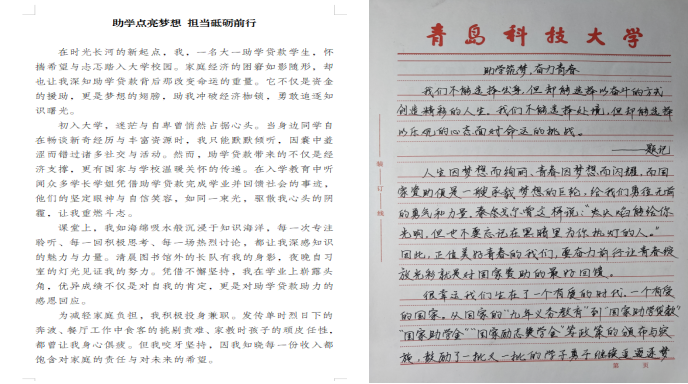 助学点亮梦想 担当砥砺前行
在时光长河的新起点，我，一名大一助学贷款学生，怀
揣希望与忐忑踏入大学校园。家庭经济的困窘如影随形，却
也让我深知助学贷款背后那改变命运的重量。它不仅是资金
的援助，更是梦想的翅膀，助我冲破经济枷锁，勇敢追逐知
识曙光。
初入大学，迷茫与自卑曾悄然占据心头。当身边同学自
在畅谈新奇经历与丰富资源时，我只能默默倾听，因囊中羞
涩而错过诸多社交与活动。然而，助学贷款带来的不仅是经
济支撑，更有国家与学校温暖关怀的传递。在入学教育中听
闻众多学长学姐凭借助学贷款完成学业并回馈社会的事迹，
他们的坚定眼神与自信笑容，如同一束光，驱散我心头的阴
霾，让我重燃斗志。
课堂上，我如海绵吸水般沉浸于知识海洋，每一次专注
聆听、每一回积极思考、每一场热烈讨论，都让我深感知识
的魅力与力量。清晨图书馆外的长队有我的身影，夜晚自习
室的灯光见证我的努力。凭借不懈坚持，我在学业上崭露头
角，优异成绩不仅是对自我的肯定，更是对助学贷款助力的
感恩回应。
为减轻家庭负担，我积极投身兼职。发传单时烈日下的
奔波、餐厅工作中食客的挑剔责难、家教时孩子的顽皮任性，
都曾让我身心俱疲。但我咬牙坚持，因我知晓每一份收入都
饱含对家庭的责任与对未来的希望。
青岛科技大学
助学筑梦，奋力青春
我们不能选择出身，但却能选择以奋斗的方式
创造精彩的人生。我们不能选择处境，但却能选择
以乐观的心态面对命运的挑战。
——题记
人生因梦想而绚丽，青春因梦想而闪耀，而国
家资助便是一艘承载梦想的巨轮，给我们勇往无前
的勇气和力量，泰戈尔曾这样说："点头陷能给你
光明，但也不要忘记在黑暗里为你执灯的人。"
因此，正值美好青春的我们，要奋力前行让青春绽
放光彩就是对国家资助的最好回馈。
很幸运我们生在了一个有爱的时代，一个有爱
的国家。从国家的"九年义务教育"到"国家助学贷款"
"国家助学金""国家励志奖学金"等政策的颁布与实
施，鼓励了一批又一批的学子勇于继续追逐梦
装
订
线
第 页